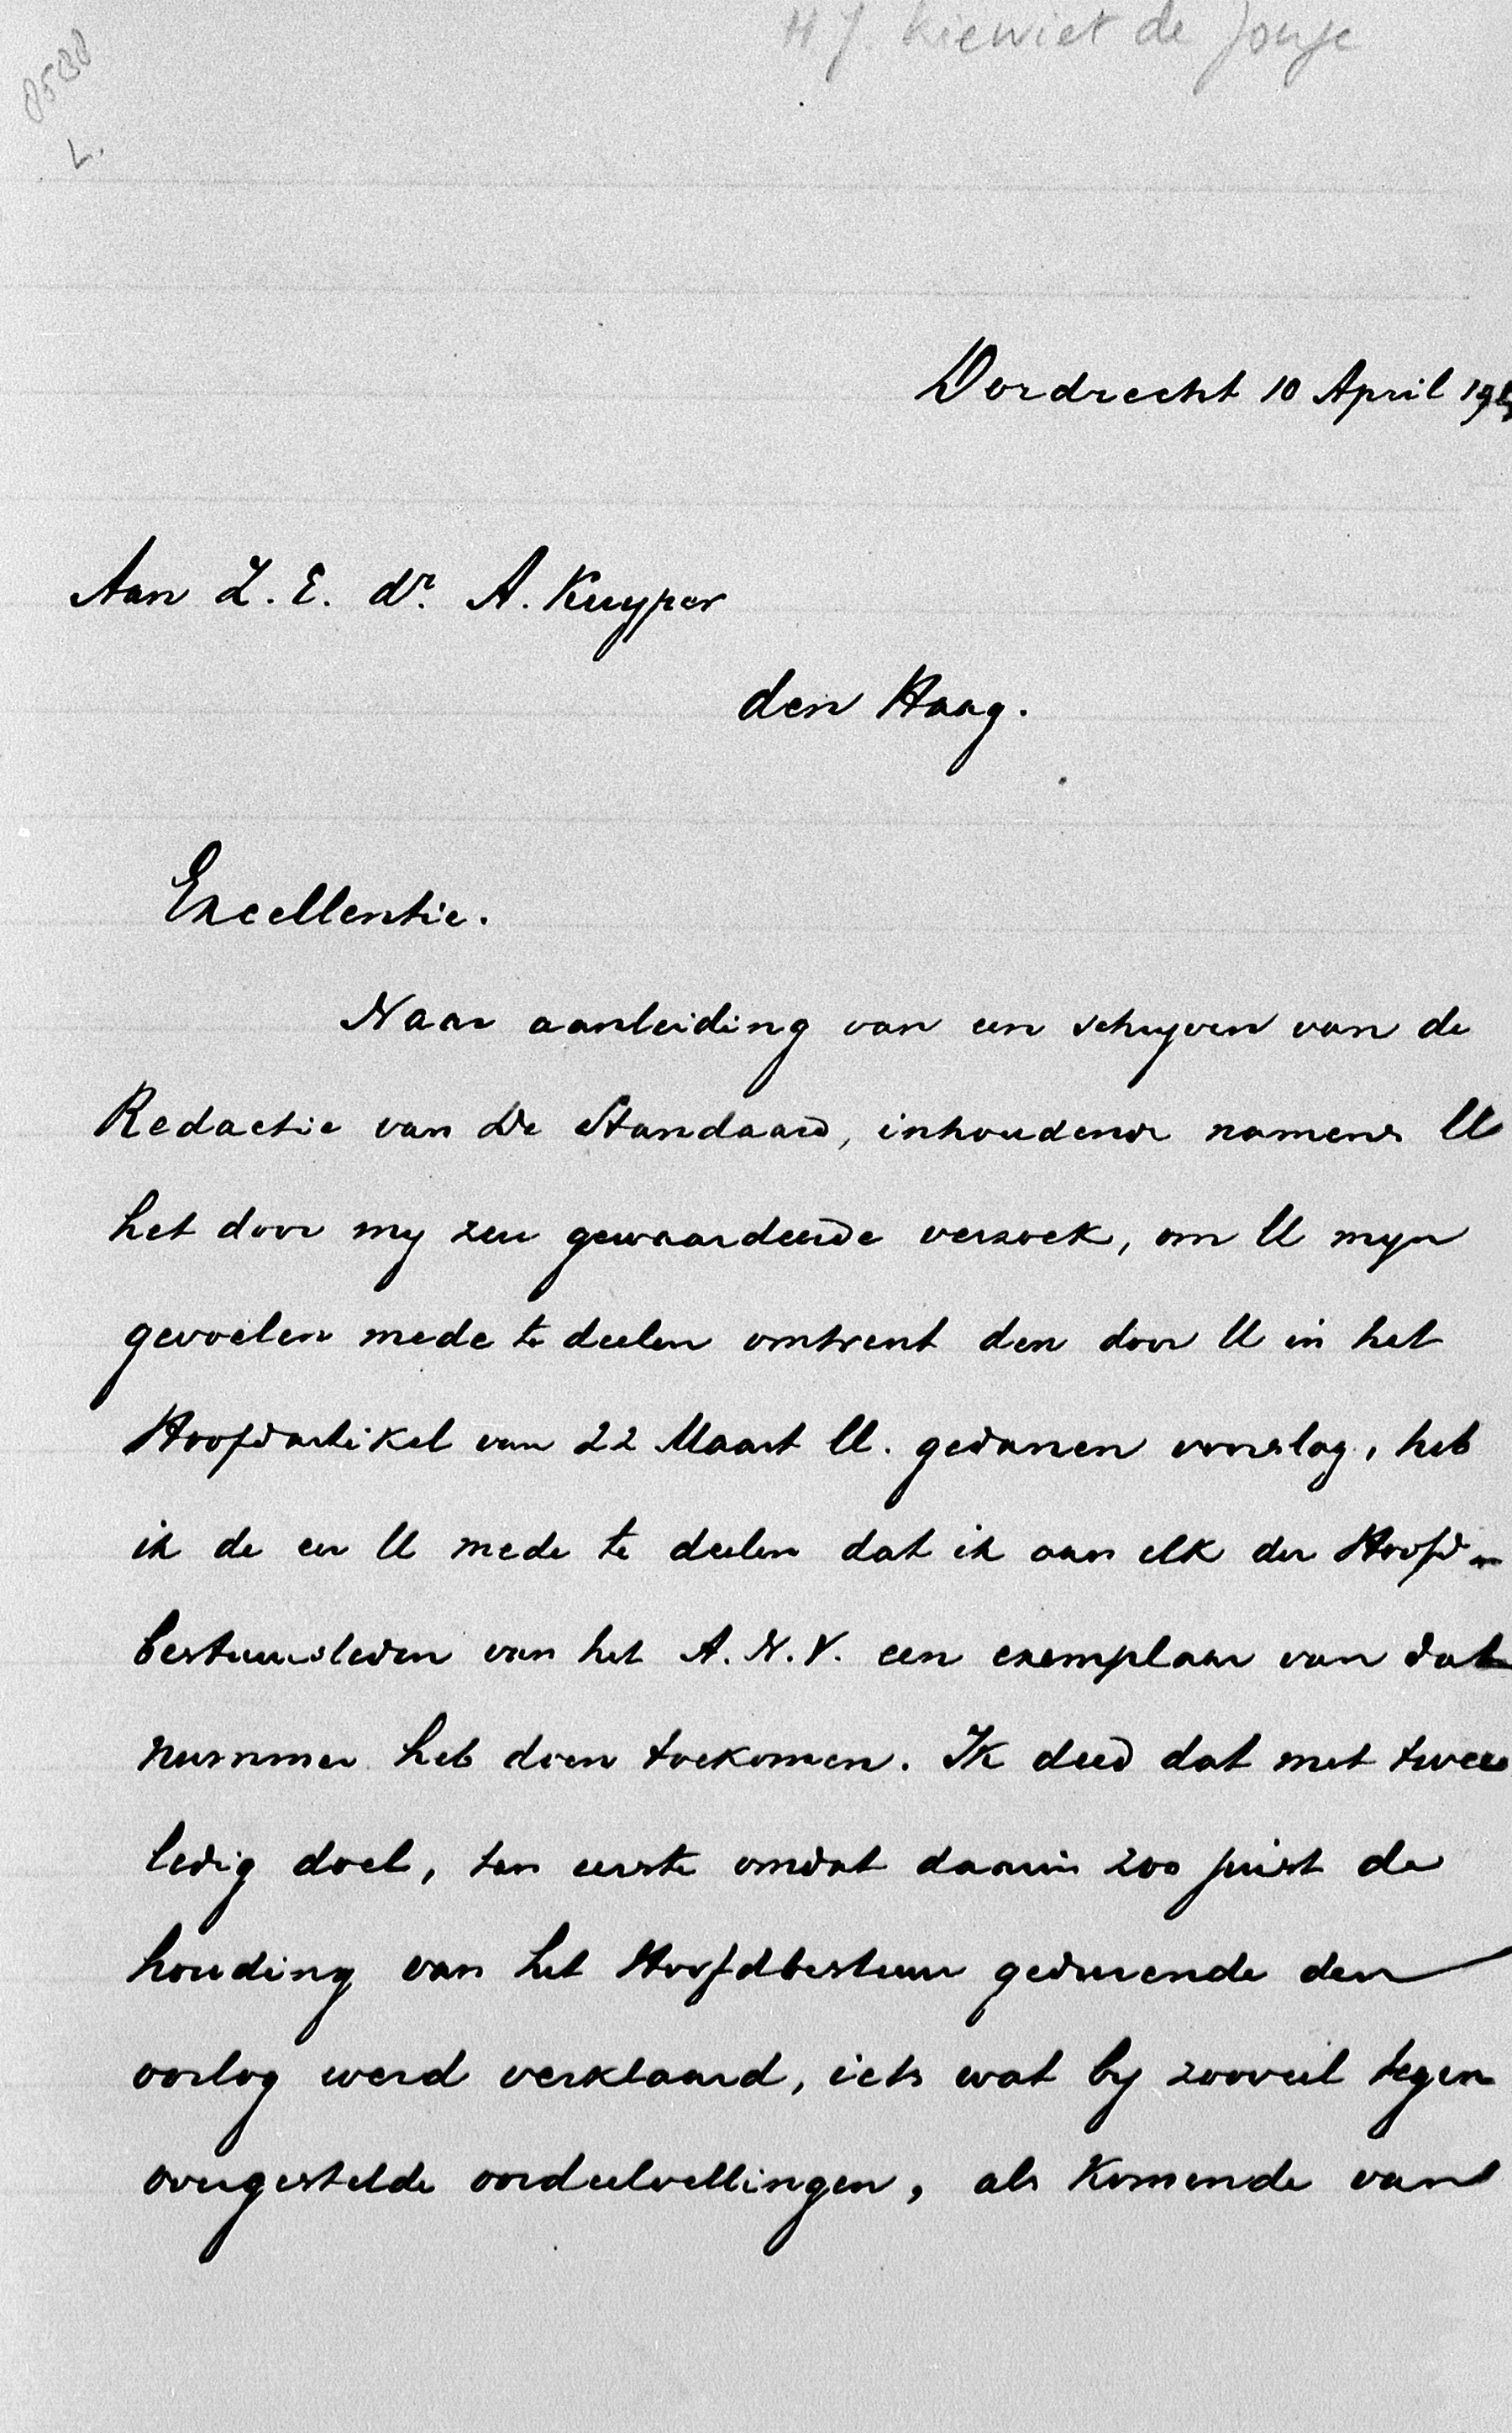 H J. Kiewiet de Jonge
8588
L.
Dordrecht 10 April
Aan Z. E. dr. A. Kuyper
den Haag.
Excellentie.
Naar aanleiding van een schrijven van de
Redactie van De Standaard, inhoudende namens U
het door mij zeer gewaardeerde verzoek, om U mijn
gevoelen mede te deelen omtrent den door U in het
Hoofdartikel van 22 Maart ll. gedanen voorslag, heb
ik de eer U mede te deelen dat ik aan elk der Hoofd-
bestuursleden van het A. N. V. een exemplaar van dat
nummer heb doen toekomen. Ik deed dat met twee
ledig doel, ten eerste omdat daarin zoo juist de
houding van het Hoofdbestuur gedurende den
oorlog werd verklaard, iets wat bij zooveel tegen
overgestelde oordeelvellingen, als komende van